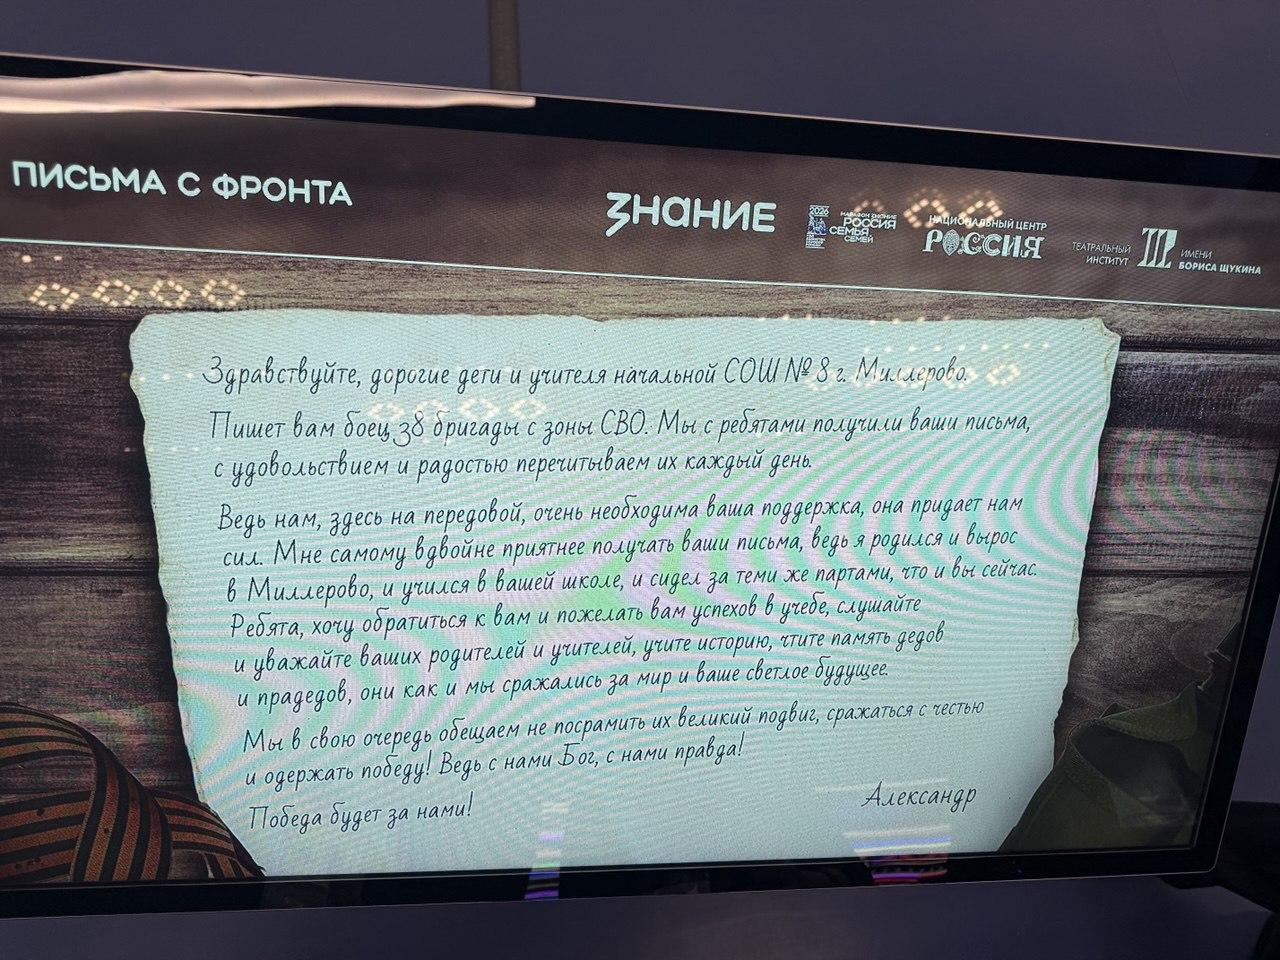 ПИСЬМА С ФРОНТА
ЗНАНИЕ
2026
МАРАФОН ЗНАНИЕ
РОССИЯ
СЕМЬЯ
СЕМЕЙ
НАЦИОНАЛЬНЫЙ ЦЕНТР
РОССИЯ
ТЕАТРАЛЬНЫЙ
ИНСТИТУТ
ИМЕНИ
БОРИСА ЩУКИНА
Здравствуйте, дорогие дети и учителя начальной СОШ № 8 г. Миллерово.
Пишет вам боец 38 бригады с зоны СВО. Мы с ребятами получили ваши письма,
с удовольствием и радостью перечитываем их каждый день.
Ведь нам, здесь на передовой, очень необходима ваша поддержка, она придает нам
сил. Мне самому вдвойне приятнее получать ваши письма, ведь я родился и вырос
в Миллерово, и учился в вашей школе, и сидел за теми же партами, что и вы сейчас.
Ребята, хочу обратиться к вам и пожелать вам успехов в учебе, слушайте
и уважайте ваших родителей и учителей, учите историю, чтите память дедов
и прадедов, они как и мы сражались за мир и ваше светлое будущее.
Мы в свою очередь обещаем не посрамить их великий подвиг, сражаться с честью
и одержать победу! Ведь с нами Бог, с нами правда!
Победа будет за нами!
Александр